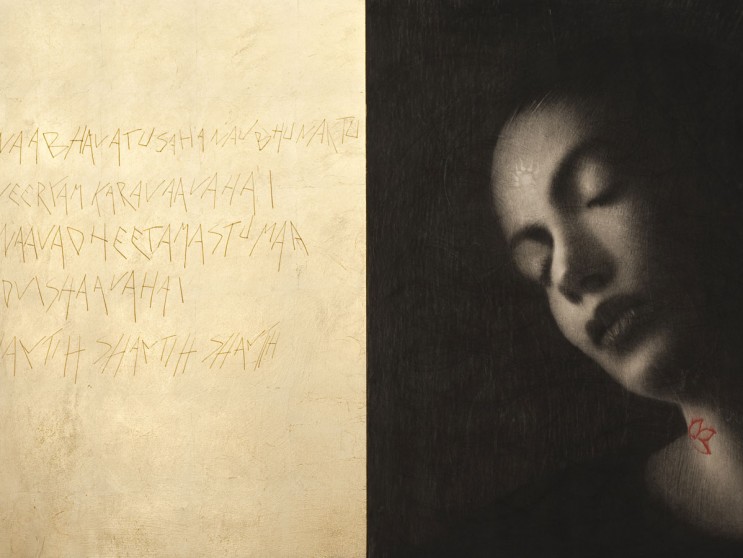 NAABHAVATUSAHANAUBHUNAKTU
VEERYAM KARAVAAVAHAI
NAAVADHEETAMASTUMAA
DVISHAAVAHAI
ANTIH SHANTIH SHANTIH